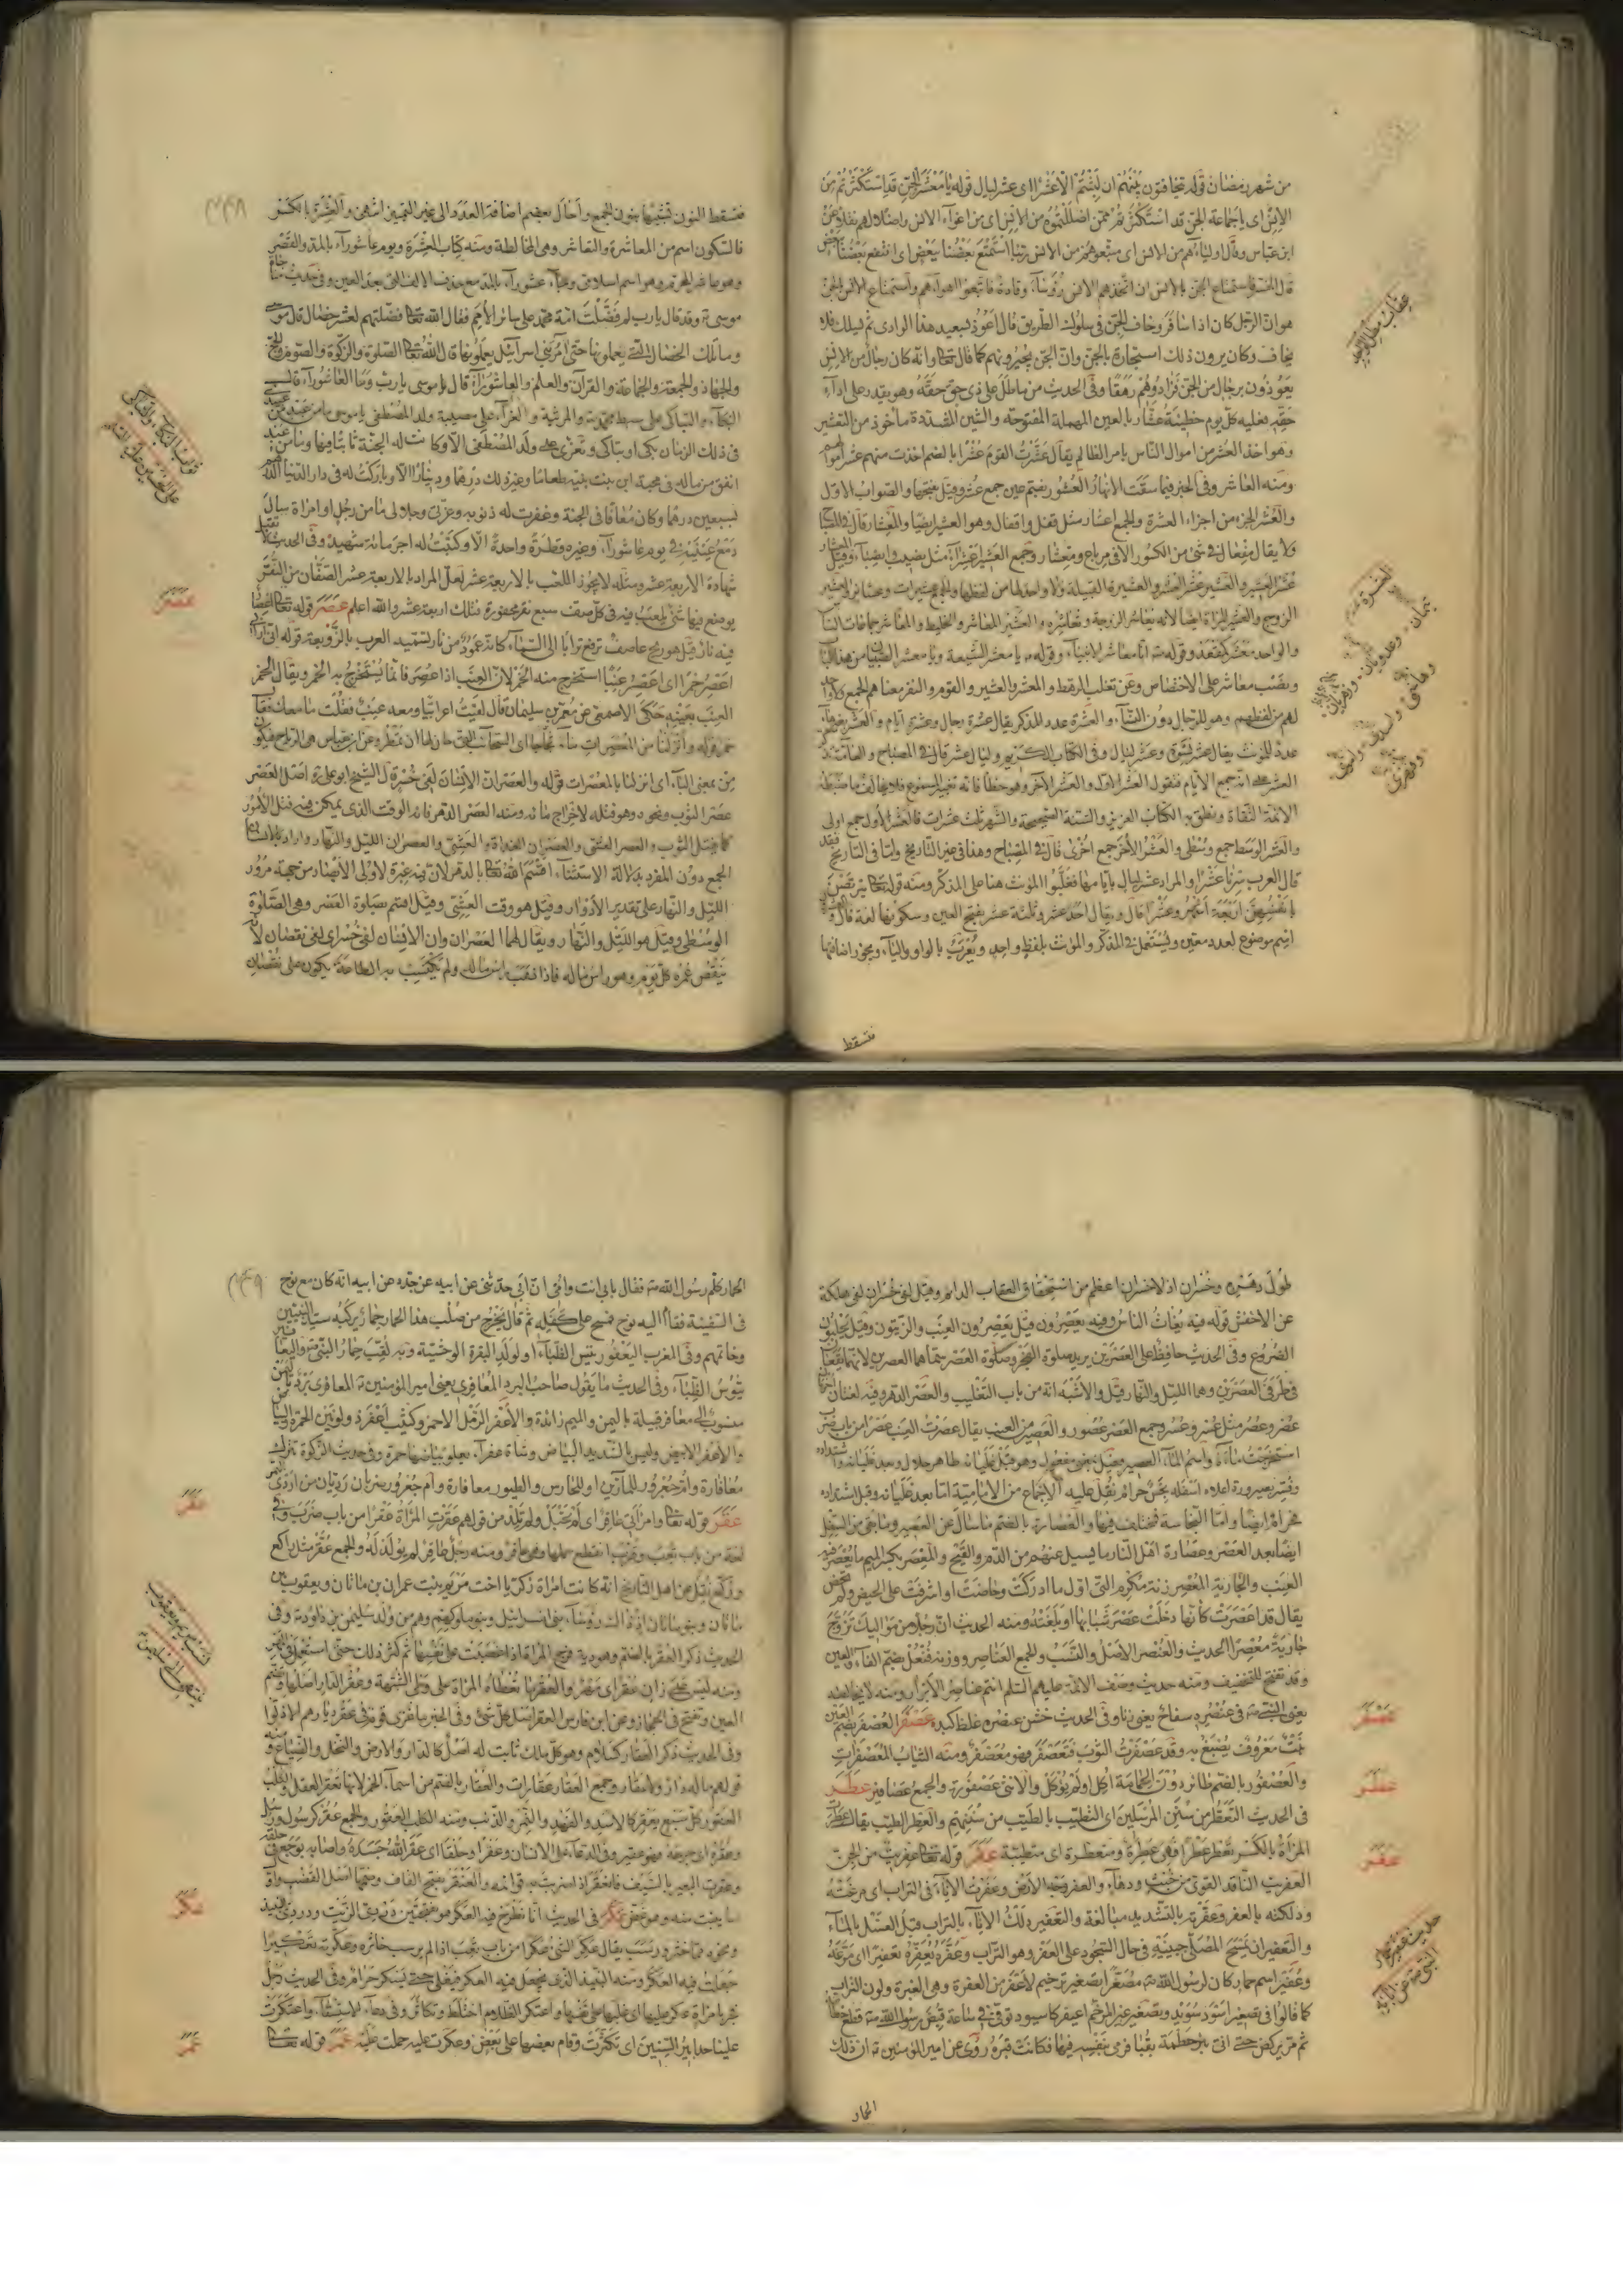 من شهر رمضان قوله يتخافتون بينهم ان لبثتم الّا عشرا اى عشر ليال قوله يا معشر الجن قد استكثرتم من
الانس اى يا جماعة الجن قد استكثرتم ممن اضللتموه من الانس اى من اغوآء الانس واضلالهم نقلا عن
ابن عباس وقال اولياؤهم من الانس اى متبعوهم من الانس ربنا استمتع بعضنا ببعض اى انتفع بعضنا ببعض
هو ان الرجل كان اذا سافر وخاف الجن فى سلوك الطريق قال اعوذ بسيد هذا الوادى ثم يسلك فلا
يخاف وكان يرون ذلك استجارة بالجن وان الجن يجيرونهم كما قال تعالى وانه كان رجال من الانس
يعوذون برجال من الجن فزادوهم رهقا وفى الحديث من ماطل على ذى حق حقه وهو يقدر على ادآء
حقه فعليه كل يوم خطيئة عشّار بالعين المهملة المفتوحة والشين المشددة مأخوذ من التعشير
وهو اخذ العشر من اموال الناس بامر الظالم يقال عشرت القوم عشرا بالضم اخذت منهم عشر اموالهم
ومنه العاشر وفى الخبر فيما سقت الانهار العشور بضم عين جمع عشر وقيل بفتحها والصواب الاول
والعشر الجزء من اجزاء العشرة والجمع اعشار مثل قفل واقفال وهو العشير ايضا والمعشار قال فى المصباح
ولا يقال مفعال فى شئ من الكسور الا فى مرباع ومعشار وجمع العشير اعشرآء مثل نصيب وانصبآء
الزوج والعشير المراة ايضا لانه يعاشر الزوجة وتعاشره والعشير المعاشر والخليط والمعاشر جماعات الناس
لهم من لفظهم وهو للرجال دون النسآء والعشرة عدد للمذكر يقال عشرة رجال وعشرة ايام والعشر بغيرها
عدد للمؤنث يقال عشر نسوة وعشر ليال وفى الكتاب الكريم وليال عشر قال فى المصباح والعامة تذكّر
العشر على انه جمع الايام فيقول العشر الاول والعشر الآخر وهو خطأ فانه تغيير المسموع
الائمة الثقاة ونطق به الكتاب العزيز والسنة الصحيحة والشهر ثلث عشرات فالعشر الاول جمع اولى
والعشر الوسط جمع وسطى والعشر الاخر جمع اخرى قال فى المصباح وهذا فى غير التاريخ واما فى التاريخ فقد
قال العرب سرنا عشرا والمراد عشر ليال بايامها فغلّبوا المؤنث هنا على المذكر ومنه قوله تعالى يتربصن
بانفسهن اربعة اشهر وعشرا قال ويقال احد عشر وثلثة عشر بفتح العين وسكونها لغة
اسم موضوع لعدد معين ويستعمل فى المذكر والمؤنث بلفظ واحد ويعرب بالواو واليآء ويجوز اضافتها
فتسقط
٢٤٨
فتسقط النون تشبيها بنون الجمع واحال بعضهم اضافة العدد الى غير التمييز انتهى والعشرة بالكسر
فالسكون اسم من المعاشرة والتعاشر وهى المخالطة ومنه كتاب العشرة ويوم عاشورآء بالمد والقصر
وهو عاشر المحرم وهو اسم اسلامى وجآء عشورآء بالمد مع حذف الالف التى بعد العين وفى حديث مناجاة
موسى ع وقد قال يا رب لم فضّلت امة محمد على سائر الامم فقال الله تعالى فضلتهم لعشر خصال قال موسى
وما تلك الخصال التى يعملونها حتى آمر بنى اسرآئيل يعملونها قال الله تعالى الصلوة والزكوة والصوم والحج
والجهاد والجمعة والجماعة والقرآن والعلم والعاشورآء قال موسى يا رب وما العاشورآء قال
البكآء والتباكى على سبط محمد والمرثية والعزآء على مصيبة ولد المصطفى يا موسى ما من عبد من عبيدى
فى ذلك الزمان بكى او تباكى وتعزى على ولد المصطفى الا وكانت له الجنة ثابتا فيها وما من عبد
انفق من ماله فى محبة ابن بنت نبيه طعاما وغير ذلك درهما ودينارا الا وباركت له فى دار الدنيا الدرهم
بسبعين درهما وكان معافا فى الجنة وغفرت له ذنوبه وعزتى وجلالى ما من رجل او امراة سال
دمع عينيه فى يوم عاشورآء وغيره قطرة واحدة الا وكتبت له اجر مائة شهيد وفى الحديث لا تقبل
شهادة الاربعة عشر ومثله لا يجوز اللعب بالاربعة عشر لعل المراد بالاربعة عشر الصفّان من النقر
يوضع فيها شئ يلعب فيه فى كل صف سبع نقر محفورة فتلك اربعة عشر والله اعلم عصر قوله تعالى
فيه نار قيل هو ريح عاصف ترفع ترابا الى السمآء كانه عمود من نار تسميه العرب بالزوبعة قوله انى ارانى
اعصر خمرا اى اعصر عنبا استخرج منه الخمر لان العنب اذا عصر فانما يستخرج به الخمر ويقال الخمر
العنب بعينه حكى الاصمعى عن معتمر بن سليمان قال لقيت اعرابيا ومعه عنب فقلت ما معك فقال
خمر قوله وانزلنا من المعصرات مآء ثجاجا اى السحائب التى حان لها ان تمطر وعن ابن عباس هى الرياح فيكون
من بمعنى البآء اى انزلنا بالمعصرات قوله والعصر ان الانسان لفى خسر قال الشيخ ابو على ره اصل العصر
عصر الثوب ونحوه وهو فتله لاخراج مائه ومنه العصر الدهر فانه الوقت الذى يمكن فيه فتل الامور
كما يفتل الثوب والعصر العشى والعصران الغداة والعشى والعصران الليل والنهار
الجمع دون المفرد بدلالة الاستثنآء اقسم الله تعالى بالدهر لان فيه عبرة لاولى الابصار من جهة مرور
الليل والنهار على تقدير الادوار وقيل هو وقت العشى وقيل اقسم بصلوة العصر وهى الصلوة
الوسطى وقيل هو الليل والنهار ويقال لهما العصران وان الانسان لفى خسر اى لفى نقصان لانه
ينقص عمره كل يوم وهو راس ماله فاذا ذهب راس ماله ولم يكتسب به الطاعة يكون على نقصان
عصر
طول دهره وخسران اذ لا خسران اعظم من استحقاق العقاب الدائم وقيل لفى خسران لفى هلكة
عن الاخفش قوله فيه يغاث الناس وفيه يعصرون قيل يعصرون العنب والزيتون وقيل يحلبون
الضروع وفى الحديث حافظ على العصرين يريد صلوة الفجر وصلوة العصر سماهما العصرين لانهما يقعان
فى طرفى العصرين وهما الليل والنهار قيل والاشبه انه من باب التغليب والعصر الدهر وفيه لغتان
عصر وعصر مثل عسر وعسر وجمع العصر عصور والعصير من العنب يقال عصرت العنب عصرا من باب ضرب
استخرجت مآءه واسم المآء العصير فعيل بمعنى مفعول وهو قبل غليانه طاهر حلال وبعد غليانه واشتداده
وفسّر بصيرورة اعلاه اسفله نجس حرام نقل عليه الاجماع من الامامية اما بعد غليانه وقبل اشتداده
فحرام ايضا واما النجاسة فمختلف فيها والعصارة بالضم ما سال عن العصير وما بقى من الثفل
ايضا بعد العصر وعصارة اهل النار ما يسيل عنهم من الدم والقيح والمعصر بكسر الميم ما يعصر فيه
العنب والجارية المعصر زنة مكرم التى اول ما ادركت وحاضت او اشرفت على الحيض ولم تحض
يقال قد اعصرت كأنها دخلت عصر شبابها او بلغته ومنه الحديث ان رجلا من مواليك تزوج
جارية معصرا الحديث والعنصر الاصل والنسب والجمع العناصر ووزنه فنعل بضم الفآء والعين
وقد تفتح للتخفيف ومنه حديث وصف الائمة عليهم السلم انتم عناصر الابرار ومنه لا يخالطه
يعنى النبى ص فى عنصره سفاح يعنى زنا وفى الحديث خشن عنصره غلظ كبده عصفر العصفر بضم العين
نبت معروف يصبغ به وقد عصفرت الثوب فتعصفر فهو معصفر ومنه الثياب المعصفرات
والعصفور بالضم طائر دون الحمامة اكل او لم يؤكل والانثى عصفورة والجمع عصافير عطر
فى الحديث التعطر من سنن المرسلين اى التطيب بالطيب من سننهم والعطر الطيب يقال عطرت
المرأة بالكسر تعطر عطرا فهى عطرة ومتعطرة اى متطيبة عفر قوله تعالى عفريت من الجن
العفريت النافذ القوى مع خبث ودهآء والعفر وجه الارض وعفرت الانآء فى التراب اى مرغته
ودلكته بالعفر وعفرته بالتشديد مبالغة والتعفير دلك الانآء بالتراب قبل الغسل بالمآء
والتعفير ان يمسح المصلى جبينه فى حال السجود على العفر وهو التراب وعفّره يعفره تعفيرا اى مرغه
وعفير اسم حمار كان لرسول الله ص مصغرا تصغير ترخيم لاعفر من العفرة وهى الغبرة ولون التراب
كما قالوا فى تصغير اسود سويد وتصغير غير المرخم اعيفر كاسيود توفى فى ساعة قبض رسول الله ص قطع خطامه
ثم مر يركض حتى اتى بئر خطمة بقبا فرمى بنفسه فيها فكانت قبره روى عن امير المؤمنين ع ان ذلك
الحمار
عصفر
عطر
عفر
٢٤٩
الحمار كلّم رسول الله ص فقال بابى انت وامى ان ابى حدثنى عن ابيه عن جده عن ابيه انه كان مع نوح
فى السفينة فقام اليه نوح فمسح على كفله ثم قال يخرج من صلب هذا الحمار حمار يركبه سيد النبيين
وخاتمهم وفى المغرب اليعفور تيس الظبآء او لولد البقرة الوحشية وبه لقب حمار النبى ص واليعافير
تيوس الظبآء وفى الحديث ما يقول صاحب البرد المعافرى يعنى امير المؤمنين ع المعافرى برد يمنى
منسوب الى معافر قبيلة باليمن والميم زائدة والاعفر الرمل الاحمر وكثيب اعفر ذو لونين الحمرة والبياض
والاعفر الابيض وليس بالشديد البياض وشاة عفرآء يعلو بياضها حمرة وفى حديث الزكوة تترك
معافارة وام جعرور للمآرين او للحارس والطيور معافارة وام جعرور ضربان رديان من اردى التمر
عقر قوله تعالى وامرأتى عاقر اى لم تحبل ولم تلد من قولهم عقرت المرأة عقرا من باب ضرب وفى
لغة من باب تعب وقرب انقطع حملها فهى عاقر ومنه رجل عاقر لم يولد له والجمع عقر مثل راكع
وركع نقل عن اهل التاريخ انه كانت امراة زكريا اخت مريم بنت عمران بن ماثان ويعقوب بن
ماثان وبنو ماثان اذ ذاك رؤسآء بنى اسرآئيل وبنو ملوكهم وهم من ولد سليمن بن داود ع وفى
الحديث ذكر العقر بالضم وهو دية فرج المراة اذا غصبت على نفسها ثم كثر ذلك حتى استعمل فى المهر
ومنه ليس على زان عقر اى مهر والعقر ما تعطاه المراة على وطى الشبهة وعقر الدار اصلها وتضم
العين وتفتح فى الحجاز وعن ابن فارس العقر اصل كل شئ وفى الخبر ما غزى قوم فى عقر ديارهم الا ذلوا
وفى الحديث ذكر العقار كسلام وهو كل ملك ثابت له اصل كالدار والارض والنخل والضياع ومنه
قولهم ما له دار ولا عقار وجمع العقار عقارات والعقار بالضم من اسمآء الخمر لانها تعقر العقل
العقور كل سبع يعقر كالاسد والفهد والنمر والذئب ومنه الكلب العقور والجمع عقر كرسول ورسل
وعقره اى جرحه فهو عقير وفى الدعآء على الانسان وعقرا وحلقا اى عقر الله جسده واصابه بوجع فى حلقه
وعقرت البعير بالسيف فانعقر اذا ضربت به قوائمه والعنقر بفتح القاف وضمها اصل القصب
ما ينبت منه وهو غض عكر فى الحديث انا نطرح فيه العكر هو بفتحتين دردى الزيت ودردى النبيذ
ونحوه مما خثر ورسب يقال عكر الشئ عكرا من باب تعب اذا لم يرسب خاثره وعكرته تعكيرا
جعلت فيه العكر ومنه النبيذ الذى يجعل فيه العكر فيغلى حتى يسكر حرام وفى الحديث رجل
فجر بامراة عكر عليها اى غلبها على نفسها واعتكر الظلام اختلط وتكاثر وفى دعآء الاستسقآء واعتكرت
علينا حدابير السنين اى تكثرت وقام بعضها على بعض وعكرت عليه حملت عليه عمر قوله تعالى
عقر
عكر
عمر